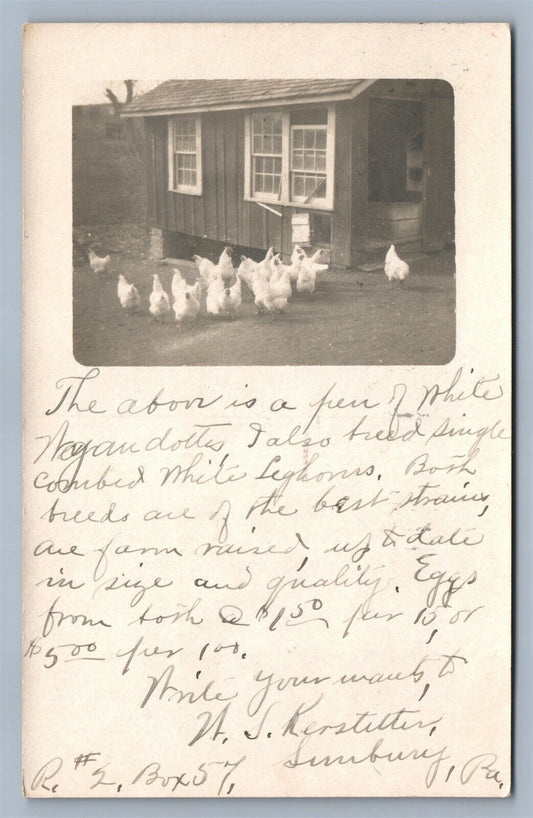 The above is a pen of White
Wyandottes, I also breed single
combed White Leghorns. Both
breeds are of the best strains,
are farm raised, up to date
in size and quality. Eggs
from both @ $1.50 per 15, or
$5.00 per 100.
Write your wants, to
W. S. Kerstetter,
Sunbury, Pa.
R. #2, Box 57,